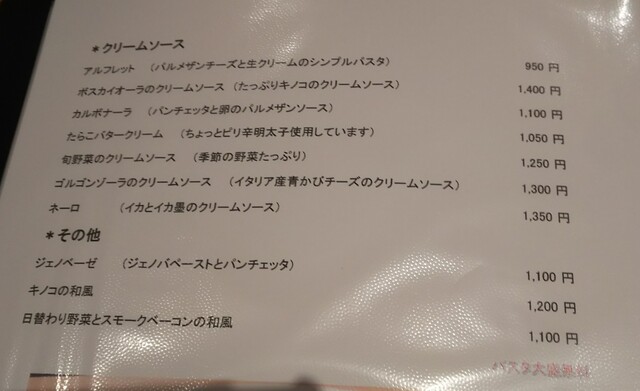 ＊クリームソース
アルフレット （パルメザンチーズと生クリームのシンプルパスタ） 950 円
ボスカイオーラのクリームソース （たっぷりキノコのクリームソース） 1,400 円
カルボナーラ （パンチェッタと卵のパルメザンソース） 1,100 円
たらこバタークリーム （ちょっとピリ辛明太子使用しています） 1,050 円
旬野菜のクリームソース （季節の野菜たっぷり） 1,250 円
ゴルゴンゾーラのクリームソース （イタリア産青かびチーズのクリームソース） 1,300 円
ネーロ （イカとイカ墨のクリームソース） 1,350 円
＊その他
ジェノベーゼ （ジェノバペーストとパンチェッタ） 1,100 円
キノコの和風 1,200 円
日替わり野菜とスモークベーコンの和風 1,100 円